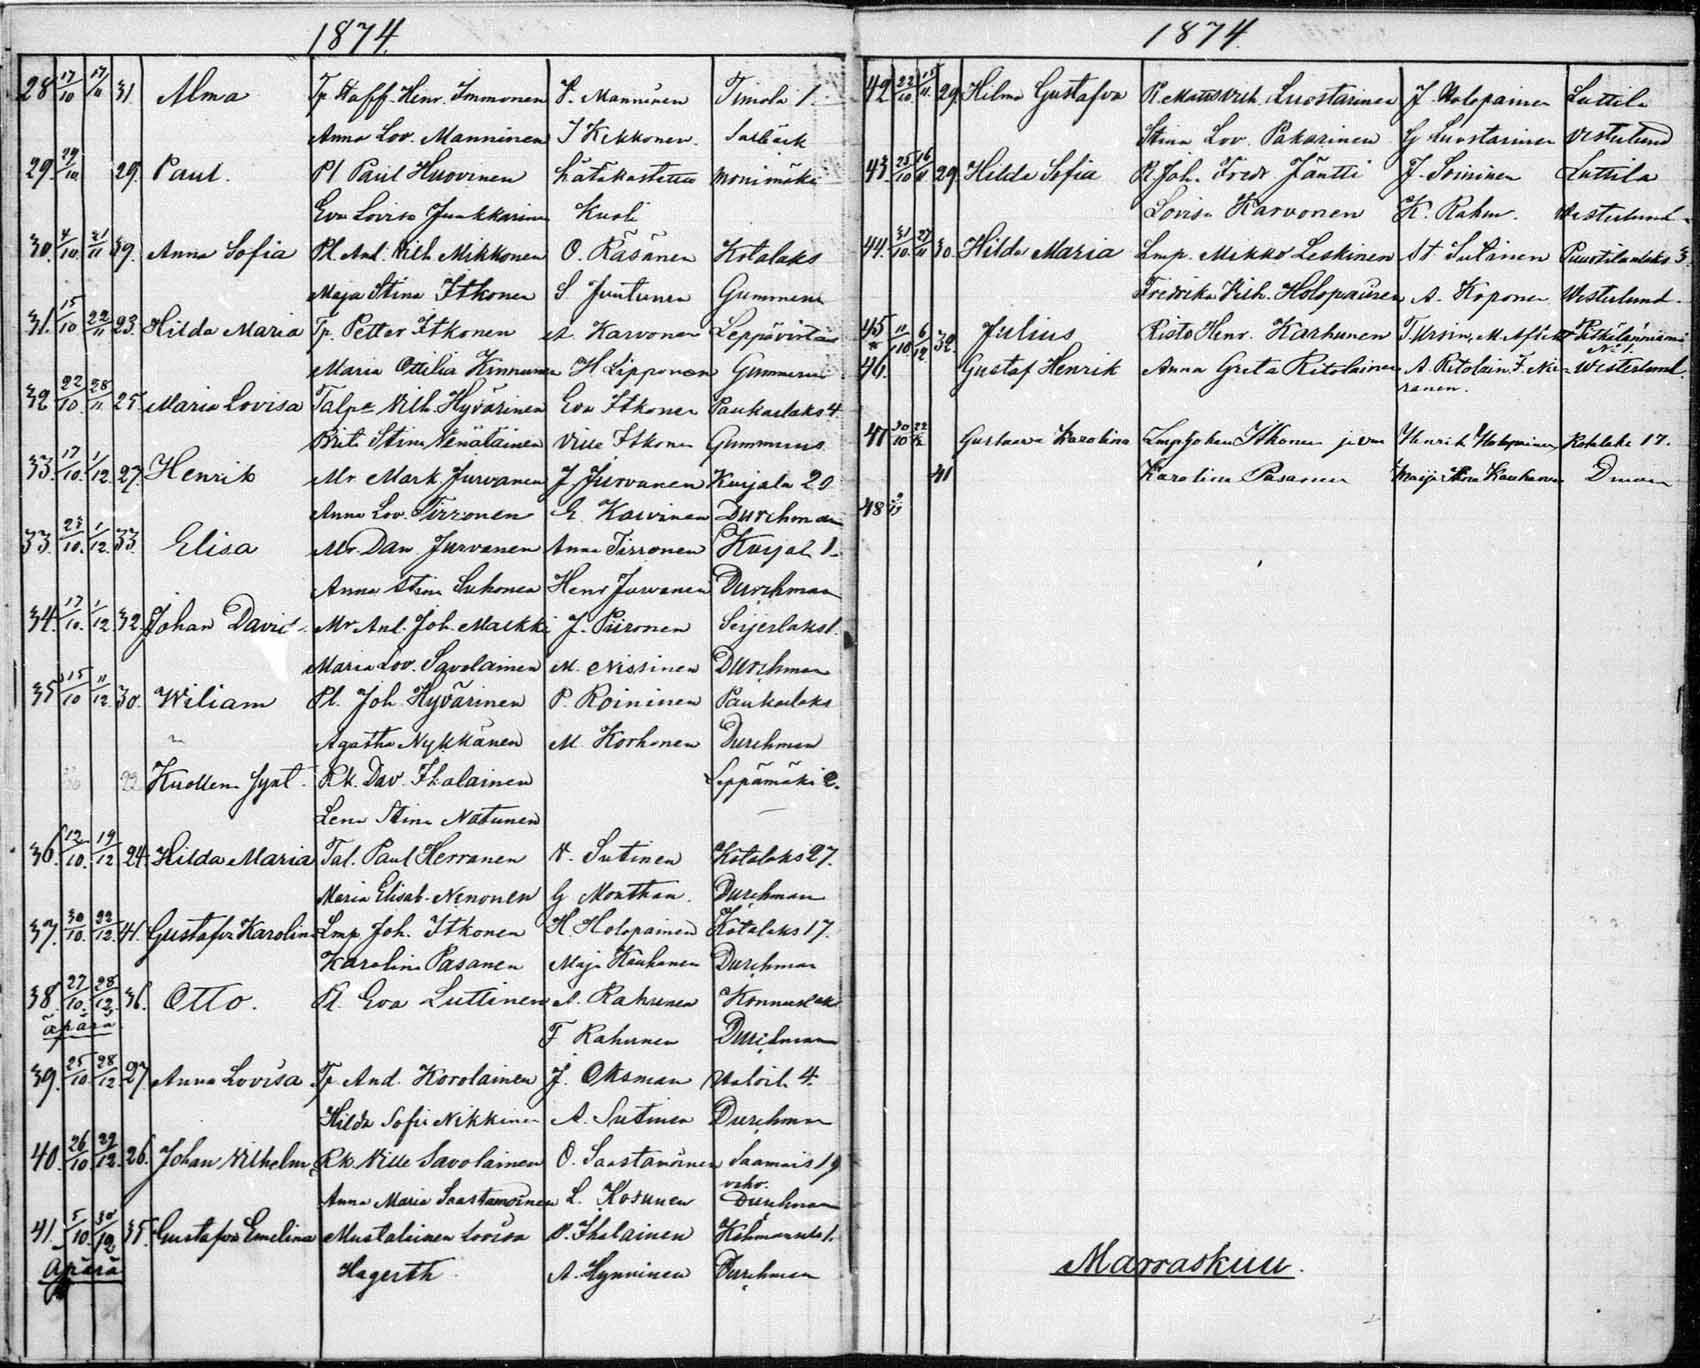 1874.
28 17/10 17/11 31. Alma Tp Staff. Henr. Immonen V. Manninen Timola 1.
Anna Lov. Manninen I Kekkonen. Salbäck
29. 29/10. 29. Paul. Pl Paul Huovinen hätäkastettu Monimäki
Eva Lovisa Junkkarinen Kuoli
30. 4/10. 21/11 39. Anna Sofia Pl. And. Vilh. Mikkonen O. Räsänen Kotalaks
Maja Stina Itkonen S Juntunen Gummerus
31. 15/10 22/11 23. Hilda Maria Tp. Petter Itkonen A. Karvonen Leppävirta
Maria Ottilia Kinnunen H. Lipponen Gummerus
32 22/10. 28/11 25. Maria Lovisa Talp. Vilh. Hyvärinen Eva Itkonen Paukarlaks 4.
Brit. Stina Venäläinen Ville Itkonen Gummerus
33. 17/10. 1/12 27. Henrik Mr Mark Jurvanen J Jurvanen Kurjala 20
Anna Lov. Tirronen E. Karvinen Durchman
33. 23/10. 1/12. 33. Elisa Mr. Dav. Jurvanen Anna Tirronen Kurjal 1.
Anna Stina Suhonen Henr Jurvanen Durchman
34. 17/10. 1/12 32. Johan David. Mr And. Joh. Markki J. Piironen Serjerlaks 1.
Maria Lov. Savolainen M. Nissinen Durchman
35 15/10 11/12. 30. Wiliam Pl. Joh Hyvärinen P. Roininen Paukarlaks
Agatha Nykkänen M. Korhonen Durchman
Kuollena synt. Rk. Dav. Ikalainen Leppämäki 2.
Lena Stina Natunen
36. 12/10. 19/12 24. Hilda Maria Tal. Paul Herranen V. Sutinen Kotalaks 27.
Maria Elisab. Nenonen G Monthan. Durchman
37. 30/10. 22/12. 41. Gustafva Karolina Lmp Joh. Itkonen H. Holopainen Kotalaks 17.
Karolina Pasanen Maja Kauhanen Durchman
38. 27/10. 28/12. 36. Otto. Pl. Eva Luttinen A. Rahunen Konnuslaks
äpärä F Rahunen Durchman
39. 25/10 28/12 27 Anna Lovisa Tp And. Korolainen J. Oksman 4.
Hilda Sofi Nikkinen A. Sutinen Durchman
40. 26/10 29/12. 26. Johan Vilhelm Rk Ville Savolainen O. Saastamoinen Saamais 19
Anna Maria Saastamoinen L. Kosunen Durchman
41. 5/10. 30/12 35. Gustafva Emelina Mustalainen Lovisa P. Ikalainen 1.
Äpärä Hagerth. A. Hynninen Durchman
1874.
42 22/10 15/11. 29. Hilma Gustafva R Matts Vilh. Luostarinen J Holopainen Luttila
Stina Lov. Pakarinen G Luostarinen Vesterlund
43. 25/10 16/11 29. Hilda Sofia R Joh. Fredr Jäntti J. Soininen Luttila
Lovisa Karvonen K. Rahun. Westerlund
44. 31/10 27/11 30. Hilda Maria Lmp. Mikko Leskinen A Sutinen Puurtilanlaks 3.
Fredrika Vilh. Holopainen A. Koponen Westerlund.
45 11/10 6/12 32. Julius Risto Henr. Karhunen T Ursin,
46. Gustaf Henrik Anna Greta Ritolainen A. Ritolain. F. Nissinen. Westerlund.
47 30/10 22/12 Gustava Karolina Lmp Johan Itkonen ja vm Henrik Holopainen Kotalaks 17.
41 Karolina Pasanen Maija Stina Kauhanen
48
Marraskuu.